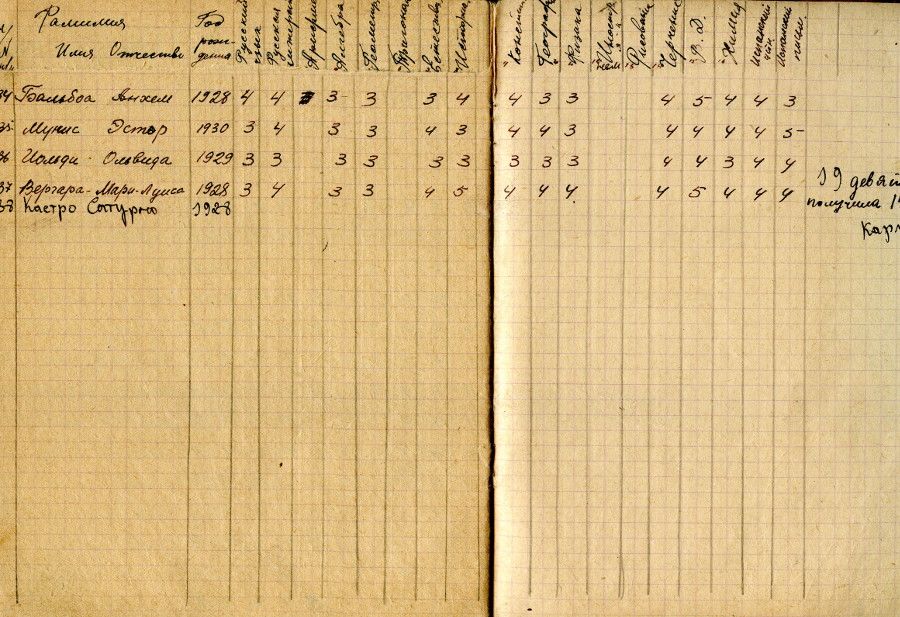 Фамилия Имя Отчество Год рождения Русский язык Русская литерат Арифм Алгебра Геометр Тригоном Естеств История Констит Географ Физика Иностр Рисование Черчение В.Д. Химия Испанский яз Испанский письм.
34 Бальбоа Анхем 1928 4 4 3 3 3 4 4 3 3 4 5 4 4 3
35 Мунис Эстер 1930 3 4 3 3 4 3 4 4 3 4 4 4 4 5
36 Иольди Ольвида 1929 3 3 3 3 3 3 3 3 3 4 4 3 4 4
37 Вергара-Мари-Луиса 1928 3 4 3 3 4 5 4 4 4 4 5 4 4 4
38 Кастро Сатурно 1928
19 девят
получила
Кар